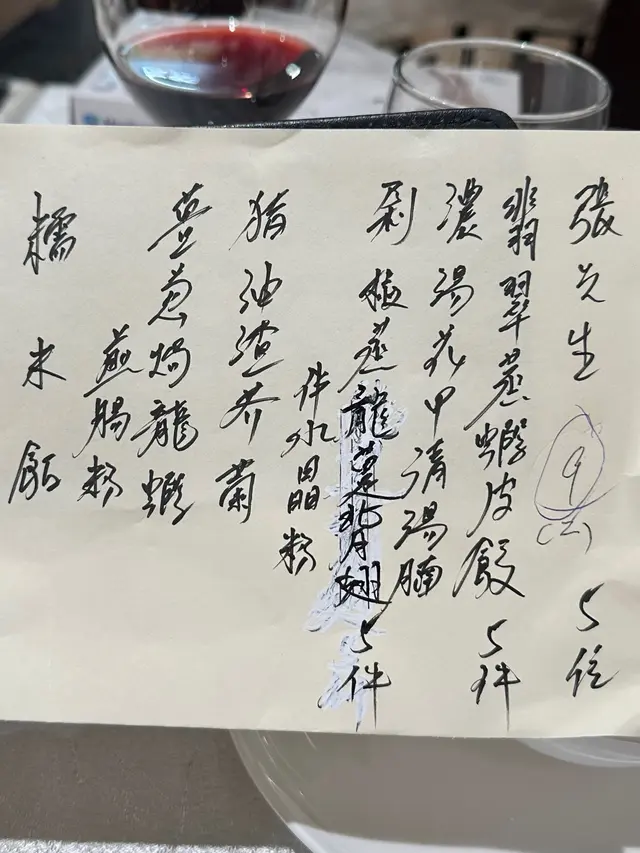 張先生 9 (二) 5位
翡翠蒸蝦皮餃 5件
濃湯花甲清湯腩
剁椒蒸龍躉背翅 5件
伴水晶粉
猪油渣芥蘭
薑葱焗龍蝦
煎腸粉
糯米飯